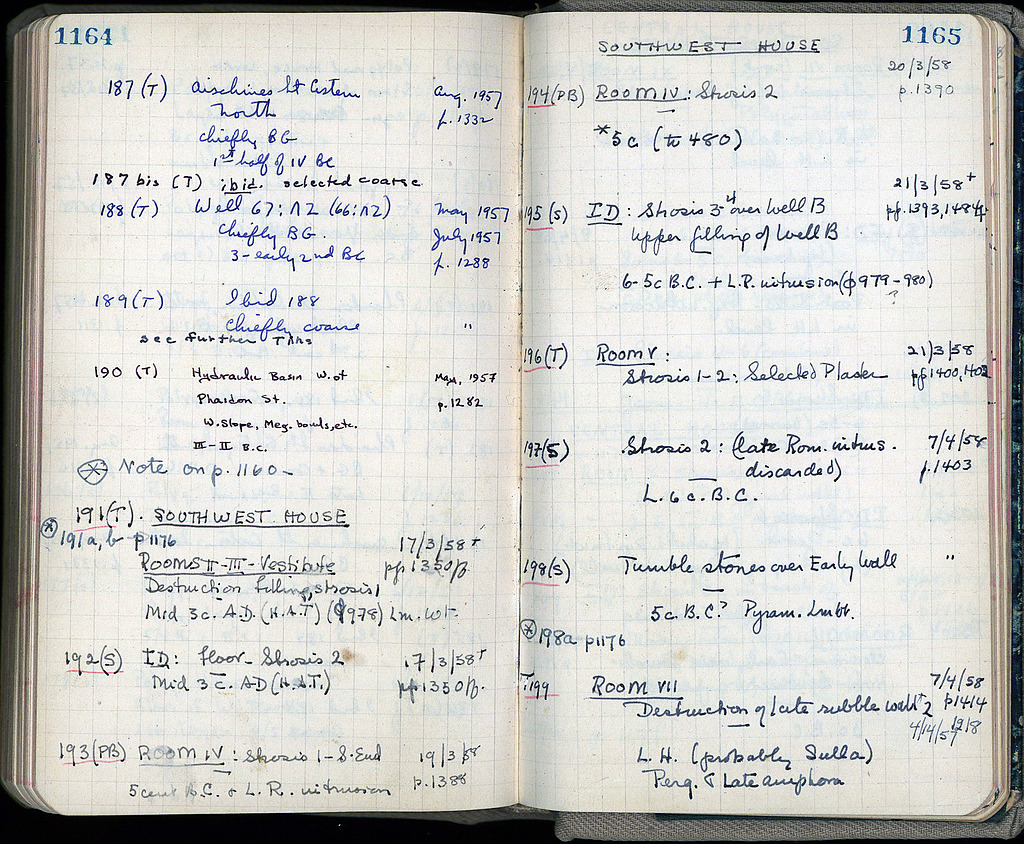 1164
187 (T) Aischines St Cistern Aug. 1957
North p. 1332
chiefly BG
1st half of IV BC
187 bis (T) ibid. selected coarse
188 (T) Well 67:Λ2 (66:Λ2) May 1957
Chiefly BG July 1957
3-early 2nd BC p. 1288
189 (T) Ibid 188
Chiefly coarse "
see further Tins
190 (T) Hydraulic Basin W. of May, 1957
Phaidon St. p. 1282
W. Slope, Meg. bowls, etc.
III-II B.C.
Note on p. 1160 -
191 (T). SOUTHWEST HOUSE
191a, b p1176 17/3/58+
ROOMS II-III-Vestibule pp. 1350ff.
Destruction filling, strosis 1
Mid 3 c. A.D. (H.A.T.) (φ978) Lm. wt.
192 (S) ID: floor-Strosis 2 17/3/58+
Mid 3 c. AD (H.A.T.) pp 1350ff.
193 (PB) ROOM IV: Strosis 1-S. End 19/3/58
p. 1388
5 cent B.C. + L.R. intrusion
1165
SOUTHWEST HOUSE
20/3/58
194 (PB) ROOM IV: Strosis 2 p. 1390
*5 c. (to 480)
21/3/58+
195 (S) ID: Strosis 3-4 over Well B pp. 1393, 1484
upper filling of Well B
6-5 c B.C. + L.R. intrusion (φ 979-980)
?
196 (T) ROOM V: 21/3/58
Strosis 1-2: Selected Plaster pp 1400, 1402
197 (S) Strosis 2: (late Rom. intrus. 7/4/58
discarded) p. 1403
L. 6 c. B.C.
198 (S) Tumble stones over Early Wall "
5 c. B.C.? Pyram. lmwt.
198a p1176
T 199 ROOM VII 7/4/58
Destruction of late rubble wall 2 p1414
4/14/59 1218
L. H. (probably Sulla)
Perg. & Late amphora